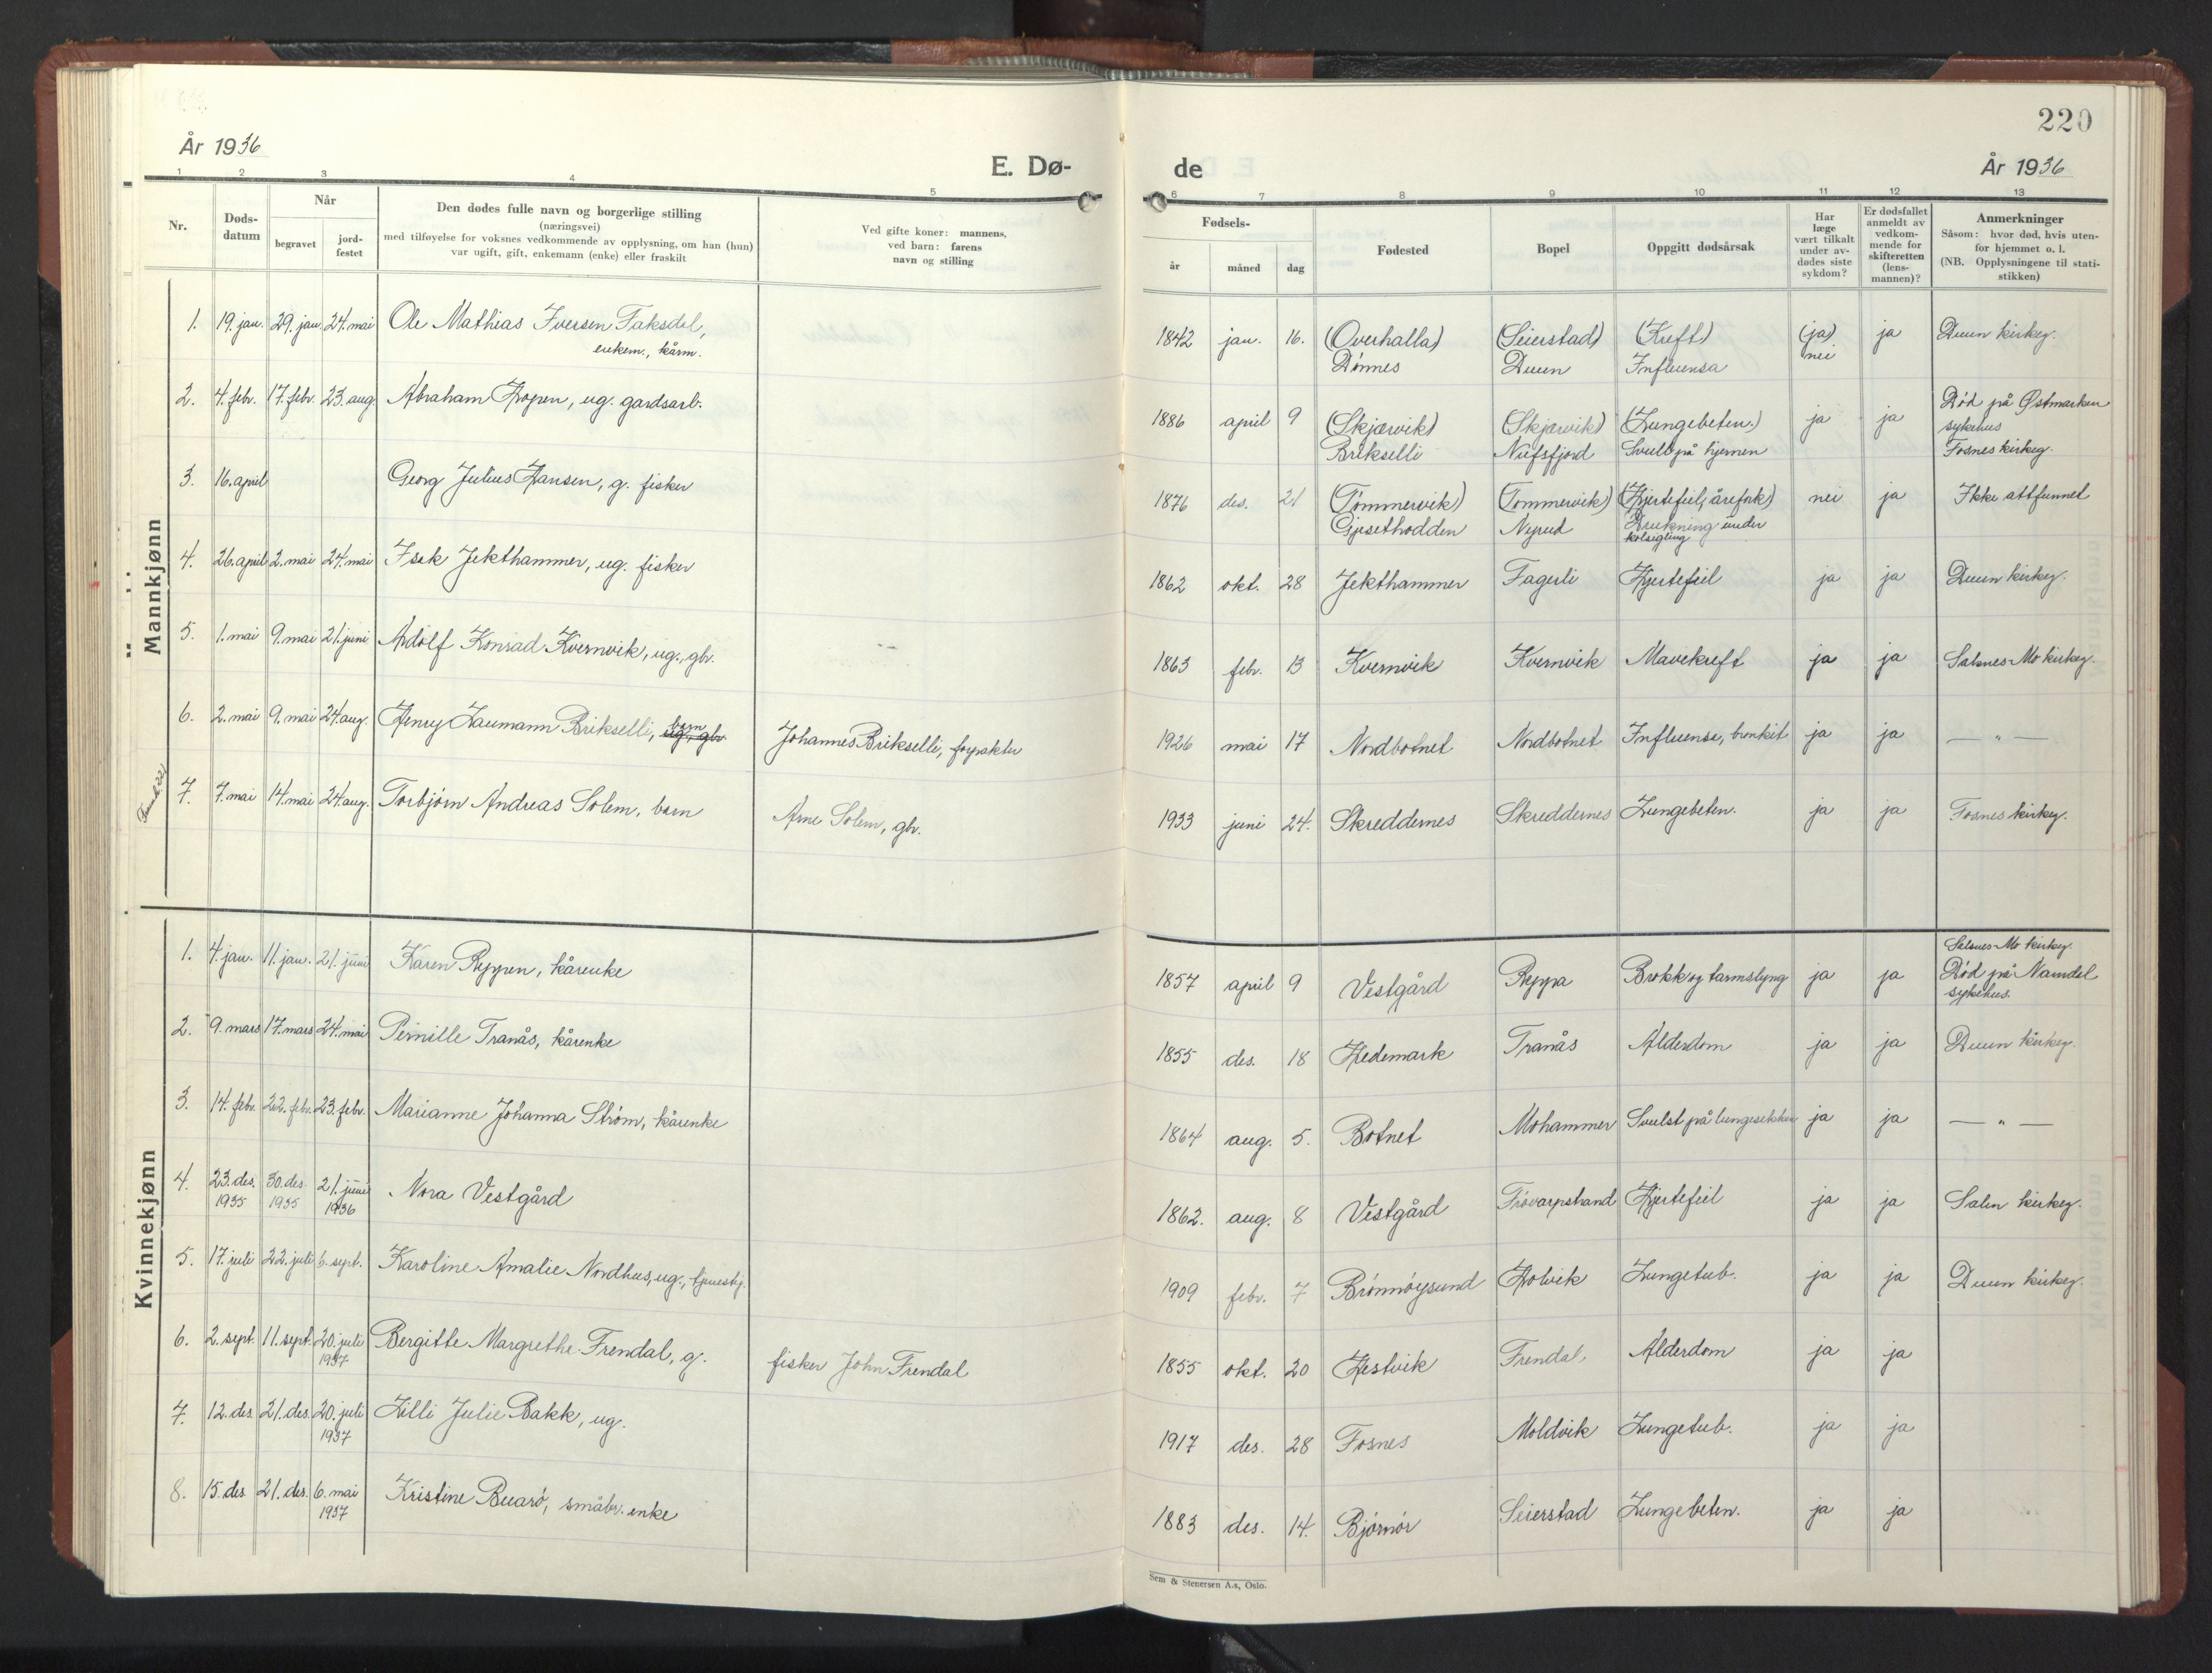 220
År 1936
E. Dø-
de
År 1936
1 2 3 4 5 6 7 8 9 10 11 12 13
Nr.
Døds-
datum
Når
begravet
jord-
festet
Den dødes fulle navn og borgerlige stilling
(næringsvei)
med tilføyelse for voksnes vedkommende av opplysning, om han (hun)
var ugift, gift, enkemann (enke) eller fraskilt
Ved gifte koner: mannens,
ved barn: farens
navn og stilling
Fødsels-
år måned dag
Fødested
Bopel
Oppgitt dødsårsak
Har
læge
vært tilkalt
under av-
dødes siste
sykdom?
Er dødsfallet
anmeldt av
vedkom-
mende for
skifteretten
(lens-
mannen)?
Anmerkninger
Såsom: hvor død, hvis uten-
for hjemmet o. l.
(NB. Opplysningene til stati-
stikken)
Mannkjønn
1. 19. jan. 29. jan. 24. mai Ole Mathias Iversen Faksdal, 1842 jan. 16. (Overhalla) (Seierstad) (Kreft) (ja) ja Duun kirkeg.
enkem., kårm. Dønnes Duun Influensa nei
2. 4. febr. 17. febr. 23. aug. Abraham Hopen, ug. gardsarb. 1886 april 9 (Skjærvik) (Skjærvik) (Lungebeten.) ja ja Død på Østmarken
sykehus
Brikselli Nufsfjord Svulst på hjernen Fosnes kirkeg.
3. 16. april Georg Julius Hansen, g. fisker 1876 des. 21 (Tømmervik) (Tømmervik) (Hjertefeil, årefork) nei ja Ikke attfunnet
Gjesethodden Nyrud Drukning under
kolsigling
4. 26. april 2. mai 24. mai Isak Jekthammer, ug. fisker 1862 okt. 28 Jekthammer Fagerli Hjertefeil ja ja Duun kirkeg.
5. 1. mai 9. mai 21. juni Adolf Konrad Kvernvik, ug., gbr. 1863 febr. 13 Kvernvik Kvernvik Mavekreft ja ja Salsnes-Mo kirkeg.
6. 2. mai 9. mai 24. aug. Henry Laumann Brikselli, ug., gbr. barn Johannes Brikselli, forpakter 1926 mai 17 Nordbotnet Nordbotnet Influensa, bronkit ja ja — " —
7. 7. mai 14. mai 24. aug. Torbjørn Andreas Solem, barn Arne Solem, gbr. 1933 juni 24. Skreddernes Skreddernes Lungebeten. ja ja Fosnes kirkeg.
Kvinnekjønn
1. 4. jan. 11. jan. 21. juni Karen Reppen, kårenke 1857 april 9 Vestgård Reppa Brokk og tarmslyng ja ja Salsnes-Mo kirkeg.
Død på Namdal
sykehus.
2. 9. mars 17. mars 24. mai Pernille Tranås, kårenke 1855 des. 18 Hedemark Tranås Alderdom ja ja Duun kirkeg.
3. 14. febr. 22. febr. 23. febr. Marianne Johanna Strøm, kårenke 1864 aug. 5. Botnet Mohammer Svulst på lungesekken ja ja — " —
4. 23. des. 1935 30. des. 1935 21. juni 1936 Nora Vestgård 1862. aug. 8 Vestgård Hjertefeil ja ja Salen kirkeg.
5. 17. juli 22. juli 6. sept. Karoline Amalie Nordhus, ug., tjenestej. 1909 febr. 7 Brønnøysund Holvik Lungetub. ja ja Duun kirkeg.
6. 2. sept. 11. sept. 20. juli 1937 Bergitte Margrethe Frendal, g. fisker John Frendal 1855 okt. 20 Hestvik Frendal Alderdom ja ja
7. 12. des. 21. des. 20. juli 1937 Lilli Julie Bakk, ug. 1917 des. 28 Fosnes Moldvik Lungetub. ja ja
8. 15. des. 21. des. 6. mai 1937 Kristine Buarø, småbr. enke 1883 des. 14. Bjørnør Seierstad Lungebeten. ja ja
Sem & Stenersen A.s, Oslo.